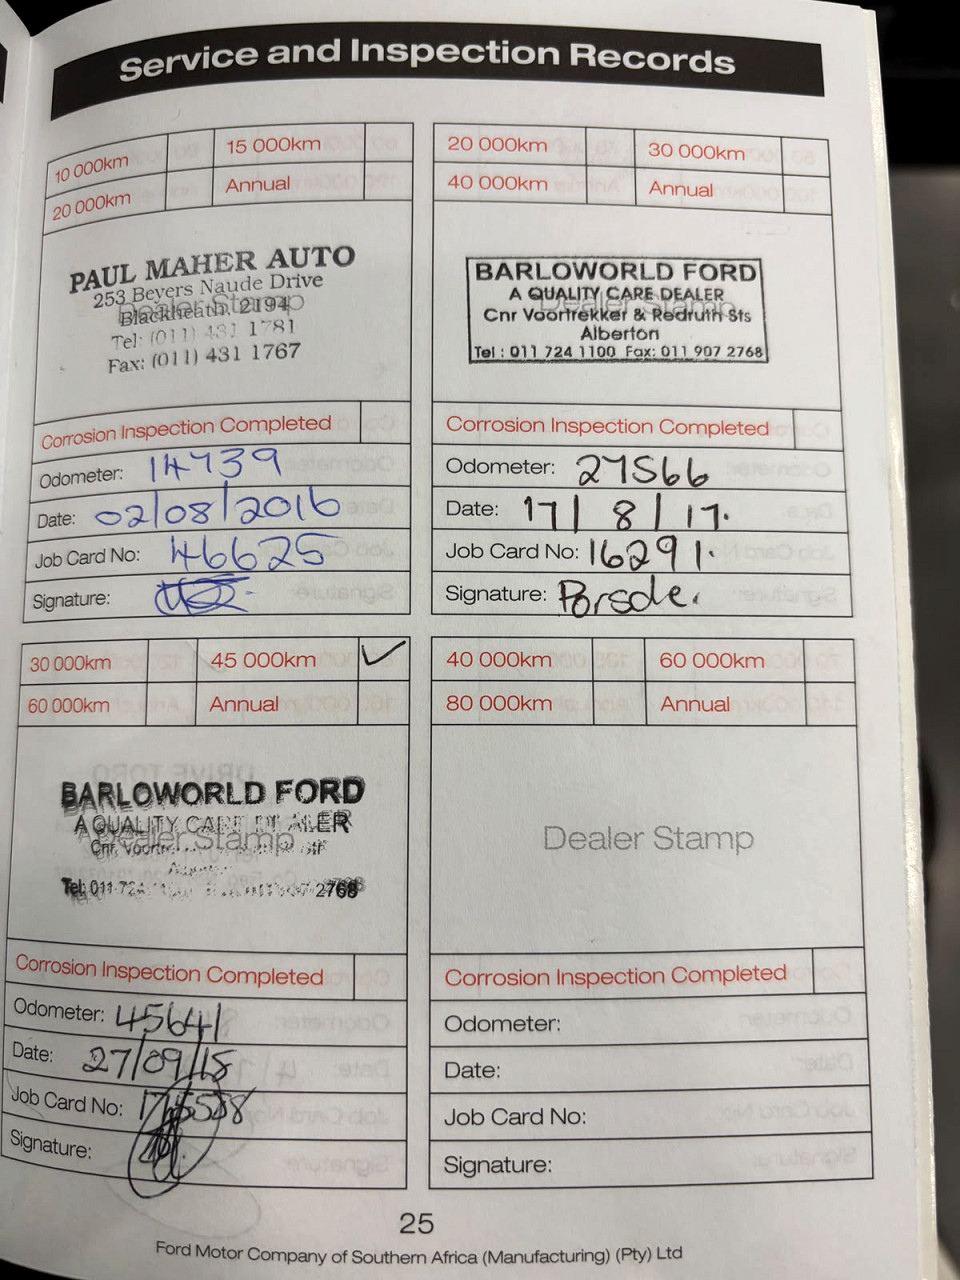 Service and Inspection Records
10 000km
15 000km
20 000km
Annual
PAUL MAHER AUTO
253 Beyers Naude Drive
Dealer Stamp
Blackheath. 2194
Tel: (011) 431 1781
Fax: (011) 431 1767
Corrosion Inspection Completed
Odometer: 14739
Date: 02/08/2016
Job Card No: 46625
Signature:
20 000km
30 000km
40 000km
Annual
BARLOWORLD FORD
A QUALITY CARE DEALER
Dealer Stamp
Cnr Voortrekker & Redruth Sts
Alberton
Tel : 011 724 1100 Fax: 011 907 2768
Corrosion Inspection Completed
Odometer: 27566
Date: 17/8/17.
Job Card No: 16291.
Signature:
30 000km
45 000km ✓
60 000km
Annual
BARLOWORLD FORD
A QUALITY CARE DEALER
Dealer Stamp
Cnr
Tel: 011 724 2768
Corrosion Inspection Completed
Odometer: 45641
Date: 27/09/18
Job Card No:
Signature:
40 000km
60 000km
80 000km
Annual
Dealer Stamp
Corrosion Inspection Completed
Odometer:
Date:
Job Card No:
Signature:
25
Ford Motor Company of Southern Africa (Manufacturing) (Pty) Ltd